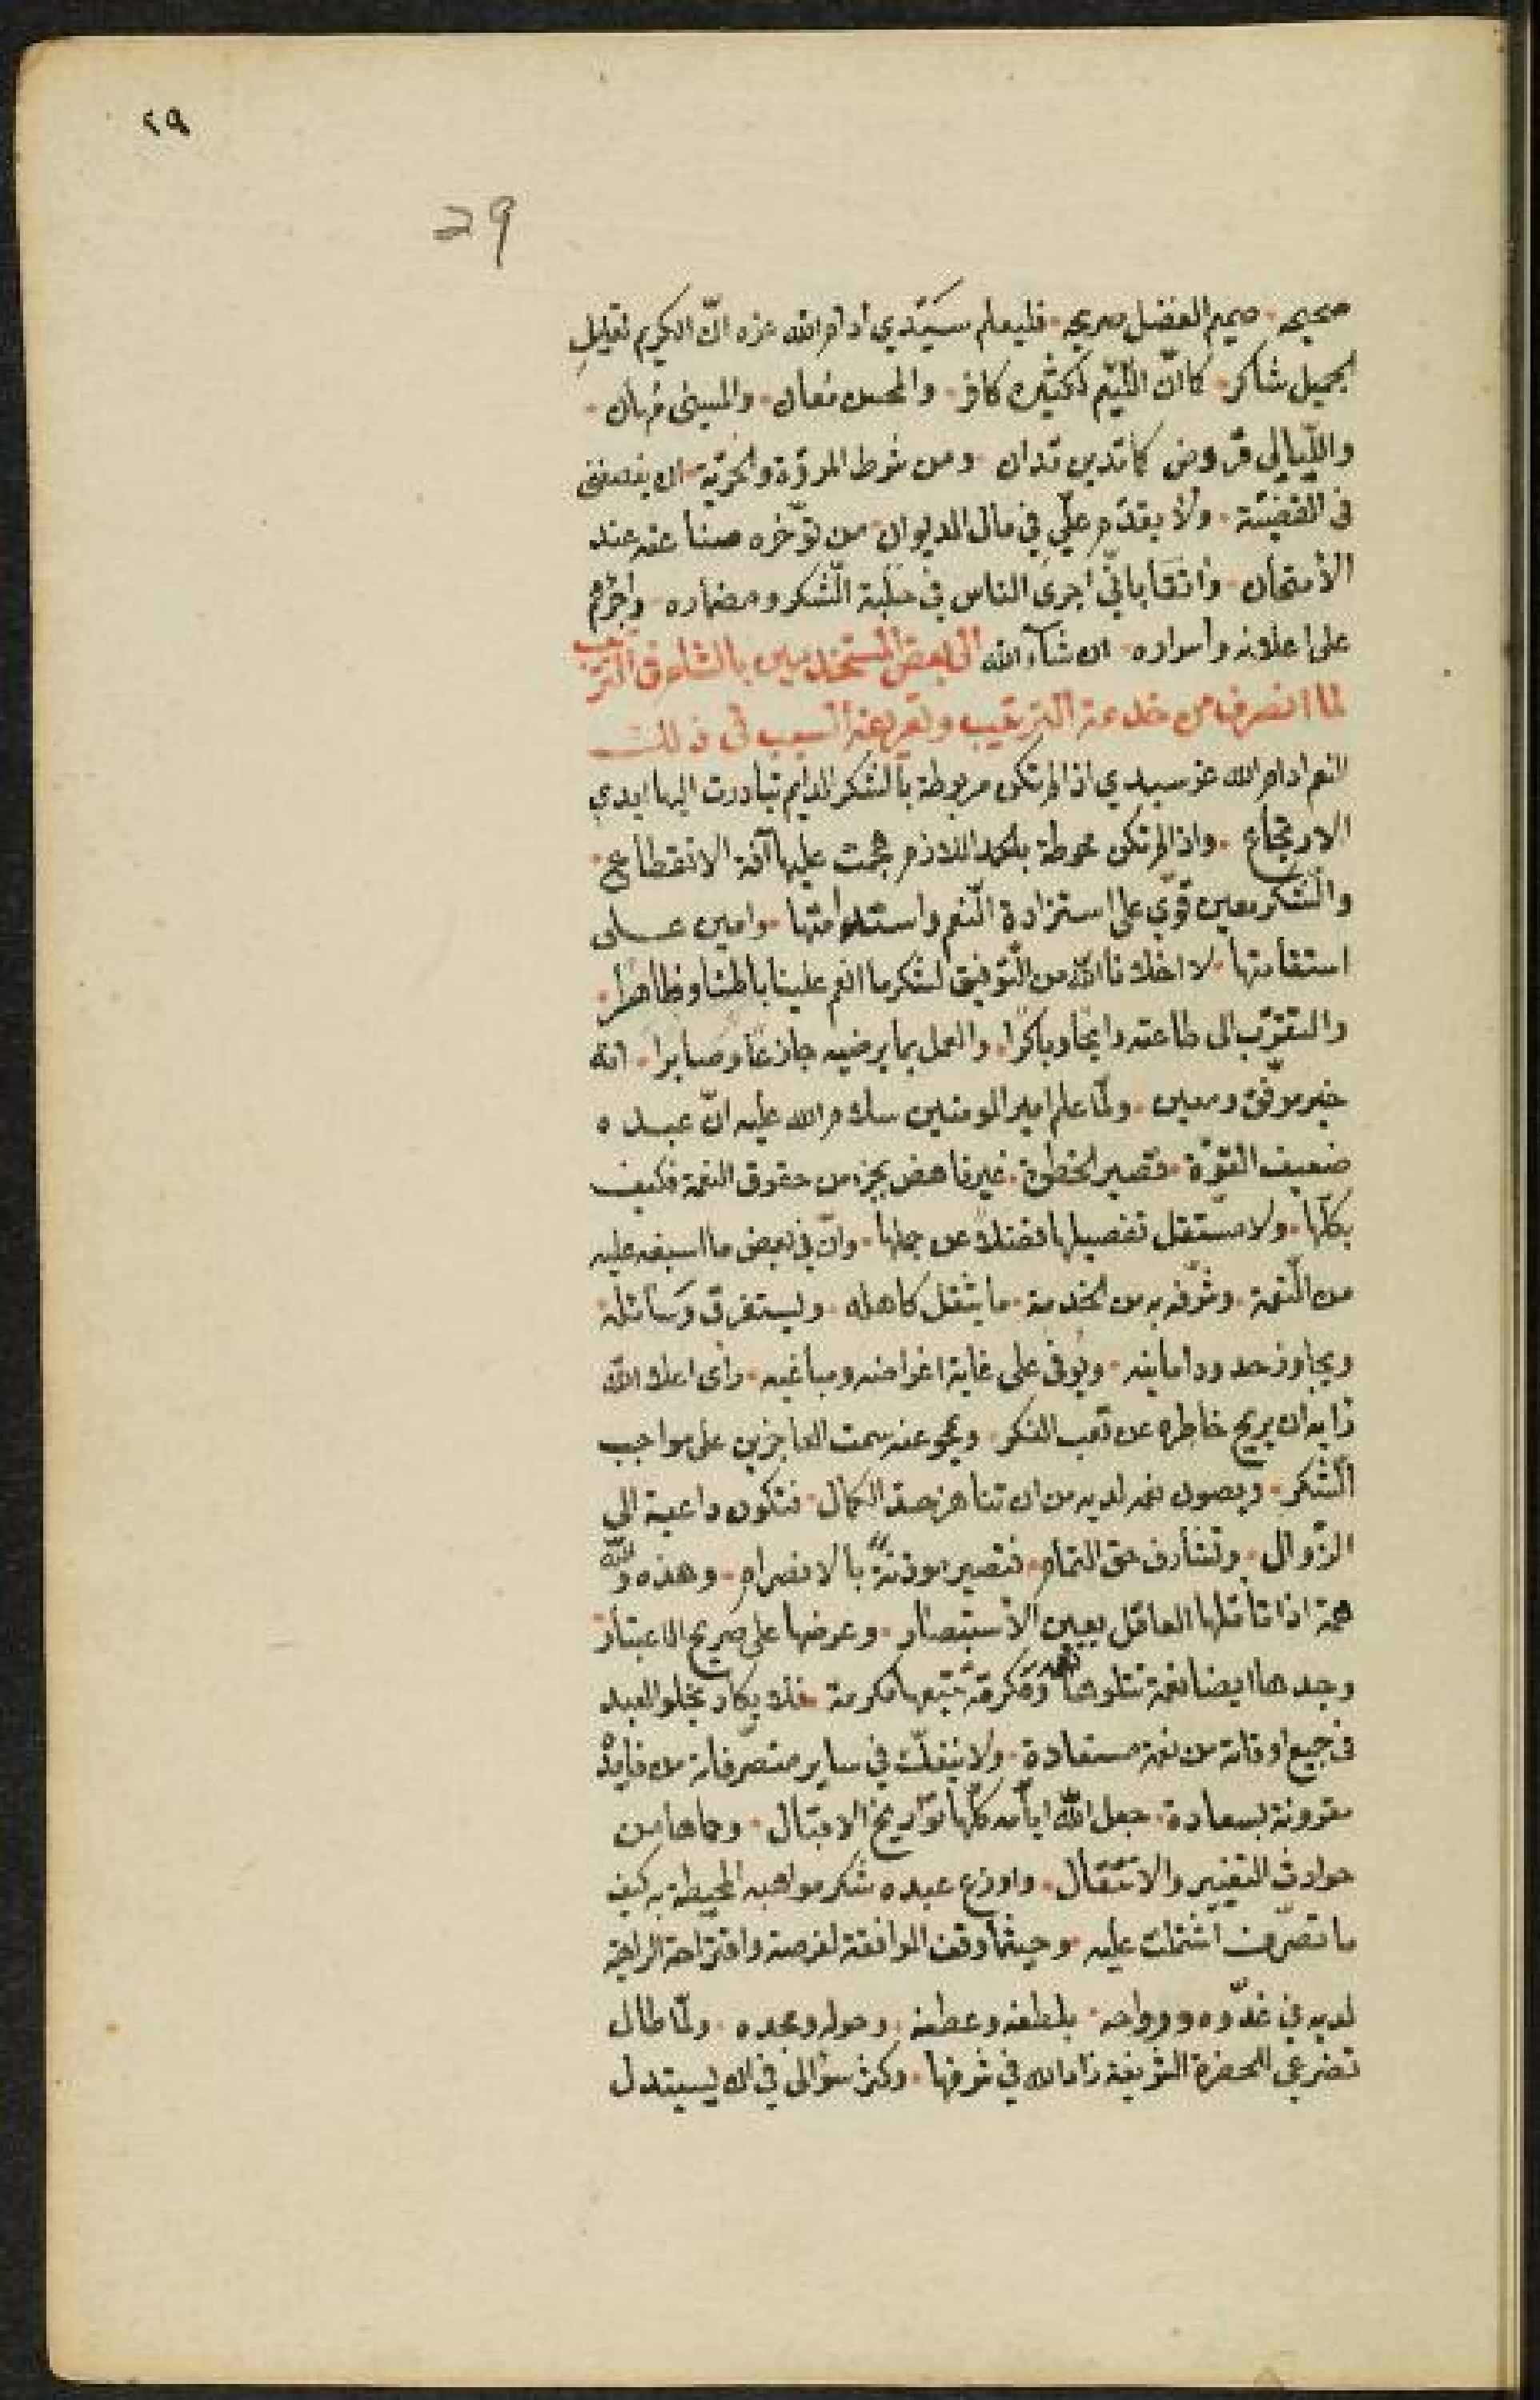 ٢٩
29
صحيحه · صميم الفضل صريحه · فليعلم سيّدي أدام الله عزه انّ الكريم لقليل
الجميل شاكر · كما انّ اللّئيم لكثيره كافر · والمحسن مُعان · والمسيئ مُهان ·
واللّيالي قروض كما تدين تدان · ومن شرط المروّة والحُرّية · ان ينصفنى
فى القضيّة · ولا يقدّم علىّ في مال الديوان من توّخره عنا عنه عند
الأمتحان · واثقا بانّي اجرى الناس في حلبة الشّكر ومضماره · واجرُهم
على اعلانه وأسراره · ان شآء الله الى بعض المستخدمين بالشام وقد الترتيب
لما انصرف من خدمة الترتيب وتعريفه السبب فى ذلك
النعم ادام الله عز سيدي اذا لم تكن مربوطة بالشكر الدايم تبادرت اليها ايدي
الارتجاع · واذا لم تكن محوطة بالحمد اللازم هجمت عليها آفة الانقطاع ·
والشكر معين قوّي على استزادة النّعم واستدامتها · وامين على
استقامتها · لا اخلانا الله من التّوفيق لشكر ما انعم علينا باطنا وظاهرا ·
والتقرّب الى طاعته رايحًا وباكرًا · والعمل بما يرضيه جازعًا وصابرا · انه
خير موّفق ومعين · ولمّا علم امير المومنين سلام الله عليه انّ عبده
ضعيف القوّة · قصير الخطوة · غير ناهض بجزء من حقوق النعمة فكيف
بكلّها · ولا مستقل تفصيلها فضلاً عن جملها · وانّ في بعض ما اسبغه عليه
من النّعمة · وشرّفه به من الخدمة · ما يثقل كاهله · ويستغرق وسائله
ويجاوز حدود امانيه · ويُوفى على غاية اغراضه ومباغيه · رأى اعلا الله
رايه ان يريح خاطره عن تعب الفكر · ويمحو عنه سمت العاجزين على مواجب
الشّكر · ويصون نعمه لديه من ان تناهز حد الكمال · فتكون داعية الى
الزّوال · وتشارف حق التمام · فتصير موذنةً بالانصرام · وهذه والله
همة اذا تأمّلها العاقل بعين الأستبصار · وعرضها على صريح الاعتبار
وجدها ايضا نعمة تتلوها نعمة ومَكرمَة تتبعها مكرمة · فلا يكاد يخلو العبد
فى جميع اوقاته من نعمة مستفادة · ولا ينفلّت في ساير متصرّفاته من فايدة
مقرونة بسعادة · جعل الله ايامه كلّها تواريخ الاقبال · وحماها من
حوادث التغيير والانتقال · واوزع عبده شكر مواهبه المحيطة به كيف
ما تصّرف اشتملت عليه · وحيثما وقف الموافقة لغرضه واقتراحه الرايحة
لديه في غدّوه ورواحه · بلطفه وعطفه · وحوله ومجده · ولمّا طال
تضرعي للحضرة الشريفة زاد الله في شرفها · وكثر سؤالى في ان يستبدل